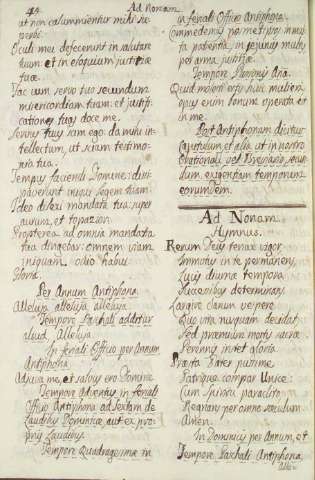 44
Ad Nonam
ut non calumnientur mihi su-
perbi.
Oculi mei defecerunt in salutare
tuum: et in eloquium justitiæ
tuæ.
Fac cum servo tuo secundum
misericordiam tuam: et justifi-
cationes tuas doce me.
Servus tuus sum ego: da mihi in-
tellectum, ut sciam testimo-
nia tua.
Tempus faciendi Domine: dissi-
paverunt iniqui legem tuam.
Ideo dilexi mandata tua: super
aurum, et topazion.
Propterea ad omnia mandata
tua dirigebar: omnem viam
iniquam odio habui.
Gloria.
Per Annum Antiphona.
Alleluja alleluja alleluja.
Tempore Paschali additur
aliud Alleluja.
In feriali Officio per Annum
Antiphona
Adjuva me, et salvus ero Domine.
Tempore Adventus in feriali
Officio Antiphona ad Sextam de
Laudibus Dominicæ, aut ex pro-
prijs Laudibus.
Tempore Quadragesimæ in
in feriali Officio Antiphona.
Commedemus nosmetipsos in mul-
ta patientia, in jejunijs multis,
per arma justitiæ.
Tempore Passionis Aña.
Quid molesti estis huic mulieri
opus enim bonum operata est
in me.
Post Antiphonam dicitur
Capitulum et alia ut in nostro
Orationali vel Breviario, secun-
dum exigentiam temporum
eorumdem.
Ad Nonam
Hymnus.
Rerum Deus tenax vigor,
Immotus in te permanens,
Lucis diurnæ tempora
Successibus determinans.
Largire clarum vespere,
Quo vita nusquam decidat,
Sed præmium mortis sacræ
Perennis instet gloria.
Præsta Pater piissime,
Patrique compar Unice:
Cum Spiritu paraclito
Regnans per omne sæculum.
Amen.
In Dominicis per Annum, et
Tempore Paschali Antiphona.